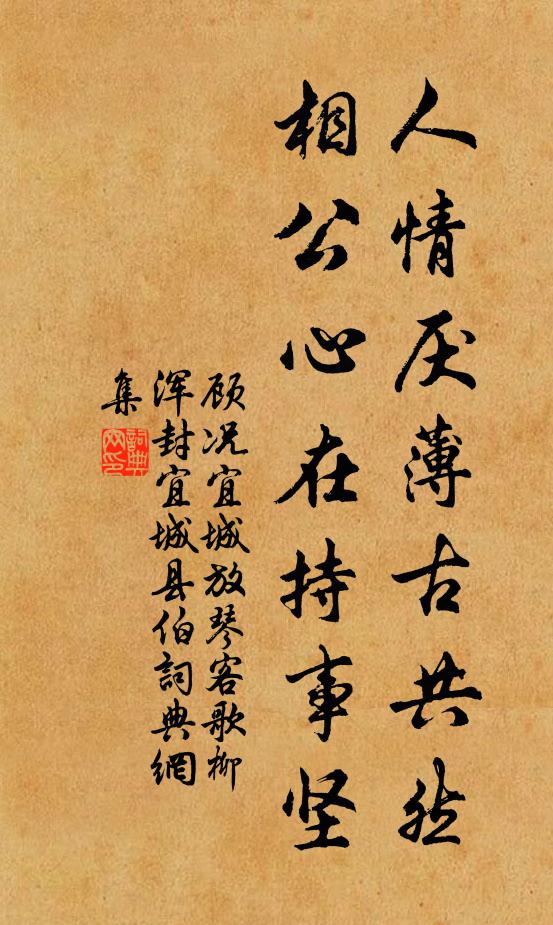 人情厌薄古共然
相公心在持事坚
顾况宜城放琴客歌柳
浑封宜城县伯詞典網
集
詞典网印